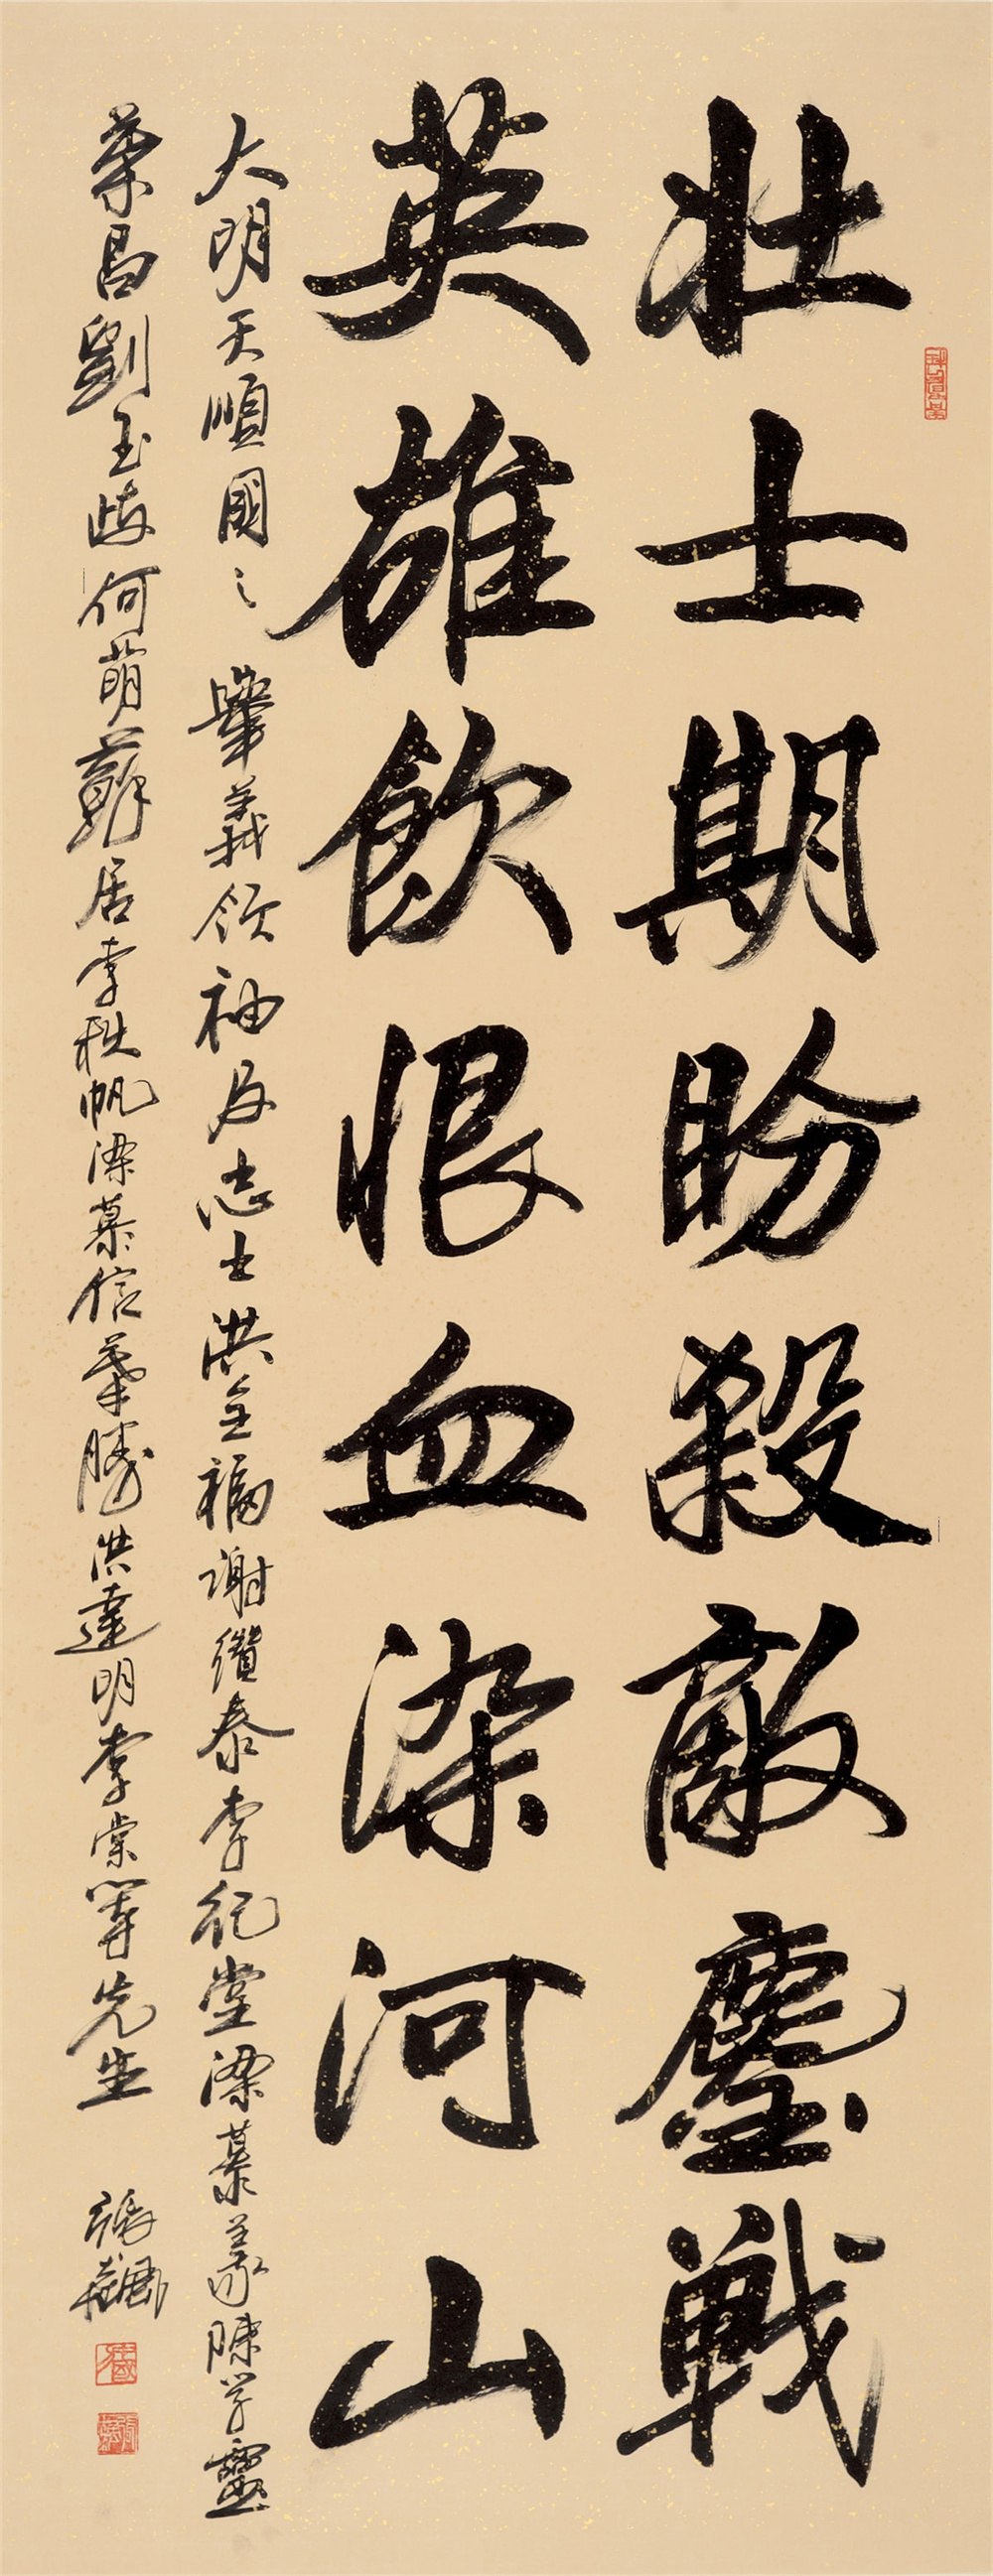 壯士期盼殺敵鏖戰
英雄飲恨血染河山
大明天順國之肇義領袖及志士洪全福謝纘泰李紀堂梁慕義陳學靈
葉昌劉玉岐何萌蘇居李秩帆梁慕信葉勝洪達明李棠等先生